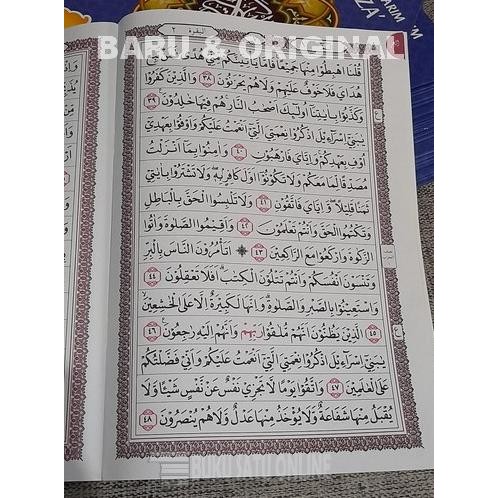 BARU & ORIGINAL
البقرة
قُلْنَا اهْبِطُوْا مِنْهَا جَمِيْعًا ۚ فَاِمَّا يَأْتِيَنَّكُمْ مِّنِّيْ هُدًى
هُدَايَ فَلَا خَوْفٌ عَلَيْهِمْ وَلَا هُمْ يَحْزَنُوْنَ ٣٨ وَالَّذِيْنَ كَفَرُوْا
وَكَذَّبُوْا بِاٰيٰتِنَآ اُولٰۤىِٕكَ اَصْحٰبُ النَّارِ ۚ هُمْ فِيْهَا خٰلِدُوْنَ ٣٩
يٰبَنِيْٓ اِسْرَاۤءِيْلَ اذْكُرُوْا نِعْمَتِيَ الَّتِيْٓ اَنْعَمْتُ عَلَيْكُمْ وَاَوْفُوْا بِعَهْدِيْٓ
اُوْفِ بِعَهْدِكُمْ ۚ وَاِيَّايَ فَارْهَبُوْنِ ٤٠ وَاٰمِنُوْا بِمَآ اَنْزَلْتُ
مُصَدِّقًا لِّمَا مَعَكُمْ وَلَا تَكُوْنُوْٓا اَوَّلَ كَافِرٍۢ بِهٖ ۖ وَلَا تَشْتَرُوْا بِاٰيٰتِيْ
ثَمَنًا قَلِيْلًا ۖ وَّاِيَّايَ فَاتَّقُوْنِ ٤١ وَلَا تَلْبِسُوا الْحَقَّ بِالْبَاطِلِ
وَتَكْتُمُوا الْحَقَّ وَاَنْتُمْ تَعْلَمُوْنَ ٤٢ وَاَقِيْمُوا الصَّلٰوةَ وَاٰتُوا
الزَّكٰوةَ وَارْكَعُوْا مَعَ الرَّاكِعِيْنَ ٤٣ ۞ اَتَأْمُرُوْنَ النَّاسَ بِالْبِرِّ
وَتَنْسَوْنَ اَنْفُسَكُمْ وَاَنْتُمْ تَتْلُوْنَ الْكِتٰبَ ۗ اَفَلَا تَعْقِلُوْنَ ٤٤
وَاسْتَعِيْنُوْا بِالصَّبْرِ وَالصَّلٰوةِ ۗ وَاِنَّهَا لَكَبِيْرَةٌ اِلَّا عَلَى الْخٰشِعِيْنَ ۙ
٤٥ الَّذِيْنَ يَظُنُّوْنَ اَنَّهُمْ مُّلٰقُوْا رَبِّهِمْ وَاَنَّهُمْ اِلَيْهِ رٰجِعُوْنَ ٤٦
يٰبَنِيْٓ اِسْرَاۤءِيْلَ اذْكُرُوْا نِعْمَتِيَ الَّتِيْٓ اَنْعَمْتُ عَلَيْكُمْ وَاَنِّيْ فَضَّلْتُكُمْ
عَلَى الْعٰلَمِيْنَ ٤٧ وَاتَّقُوْا يَوْمًا لَّا تَجْزِيْ نَفْسٌ عَنْ نَّفْسٍ شَيْـًٔا وَّلَا
يُقْبَلُ مِنْهَا شَفَاعَةٌ وَّلَا يُؤْخَذُ مِنْهَا عَدْلٌ وَّلَا هُمْ يُنْصَرُوْنَ ٤٨
BUKU SATU ONLINE